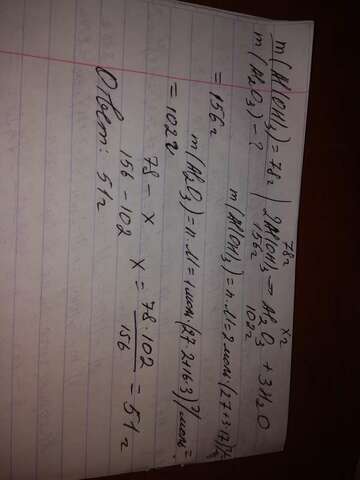 m(Al(OH)3) = 78г
m(Al2O3) - ?
78г xг
2Al(OH)3 → Al2O3 + 3H2O
156г 102г
m(Al(OH)3) = n·M = 2моль·(27+3·17)г/
= 156г
m(Al2O3) = n·M = 1моль·(27·2+16·3)г/моль =
= 102г
78 - x
156 - 102
x = 78·102 / 156 = 51г
Ответ: 51г